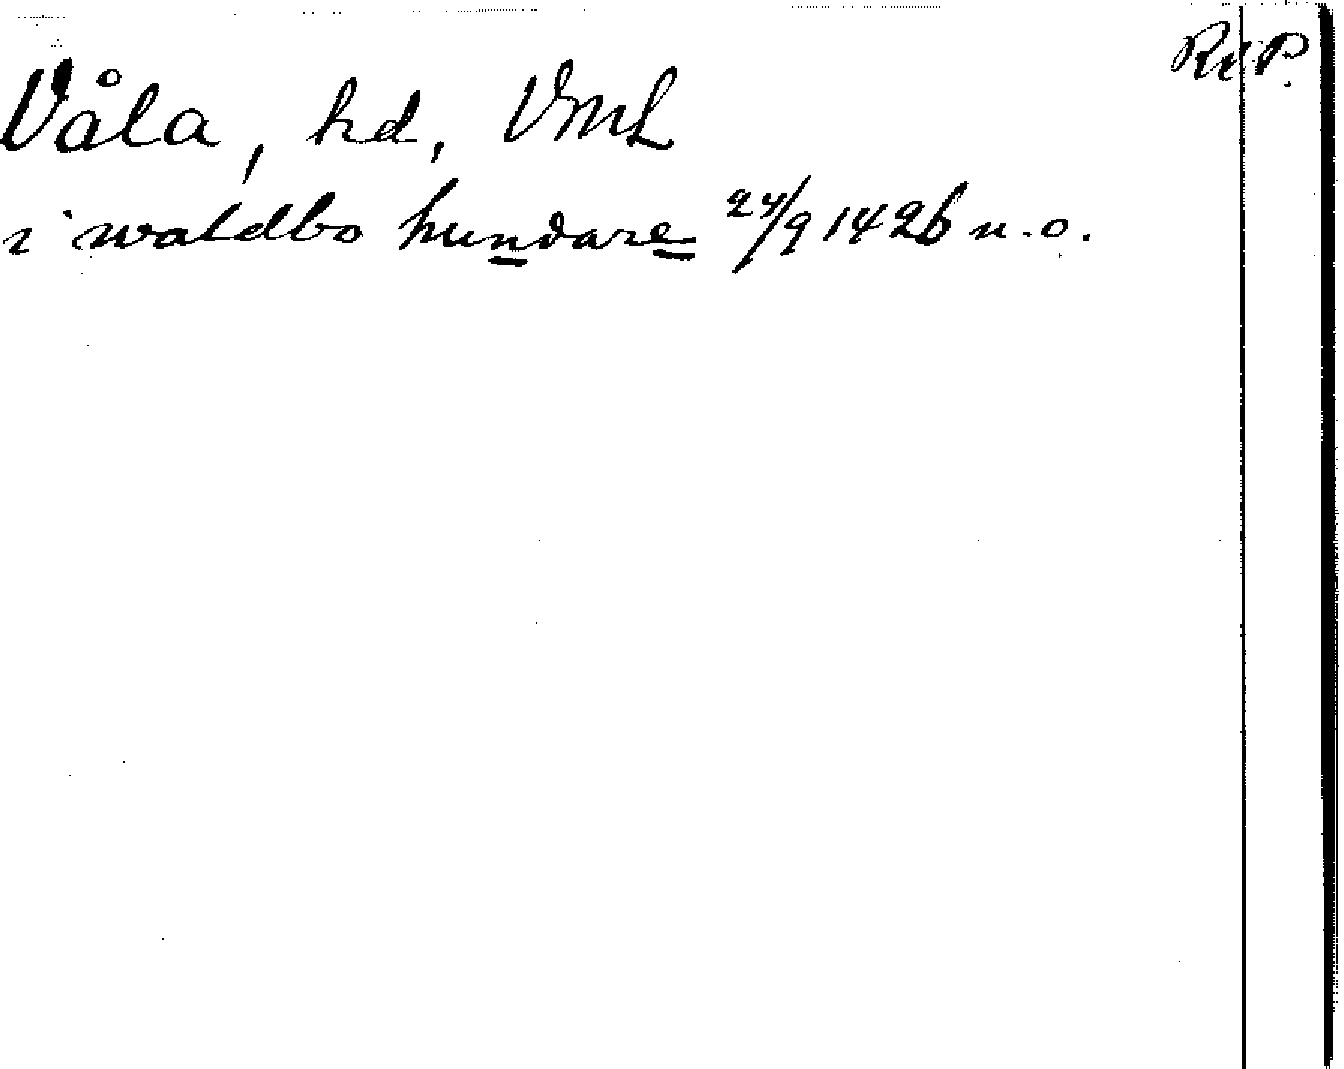 RAP.
Våla, hd, VmL
i waldbo hundare 24/9 1426 n.o.